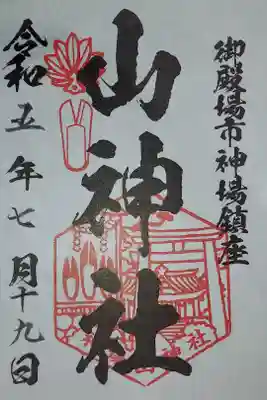 御殿場市神場鎮座
山神社
令和五年七月十九日